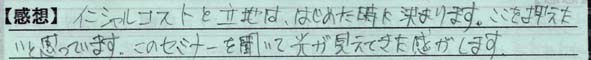 【感想】イニシャルコストと立地は、はじめた時に決まります。ここを押えた
いと思っています。このセミナーを聞いて光が見えてきた感がします。